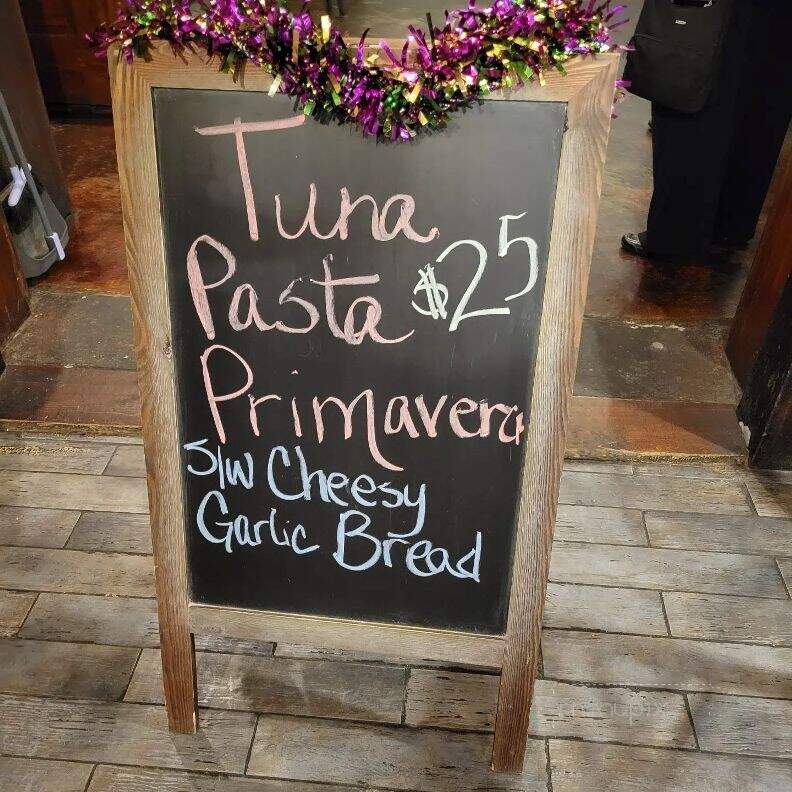 Tuna
Pasta $25
Primavera
S/W Cheesy
Garlic Bread